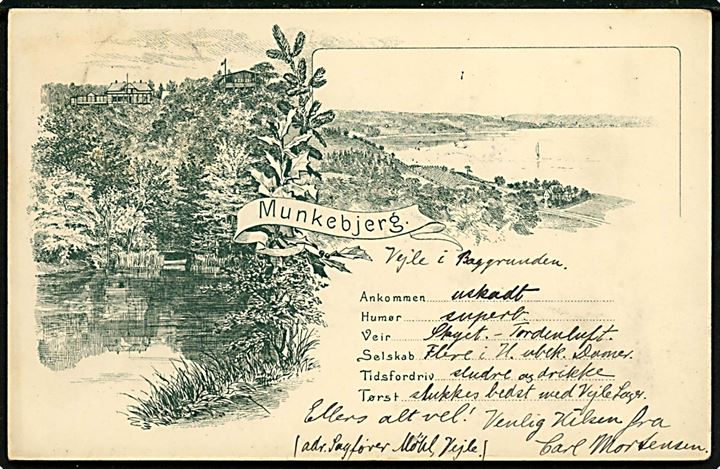 Munkebjerg.
Vejle i Baggrunden.
Ankommen uskadt
Humør superb.
Veir Skyet. - Tordenluft.
Selskab Flere i H. ubek. Damer.
Tidsfordriv sludre og drikke
Tørst slukkes bedst med Vejle Lager.
Ellers alt vel! Venlig Hilsen fra
Carl Mortensen.
(adr. Sagfører Møhl, Vejle.)